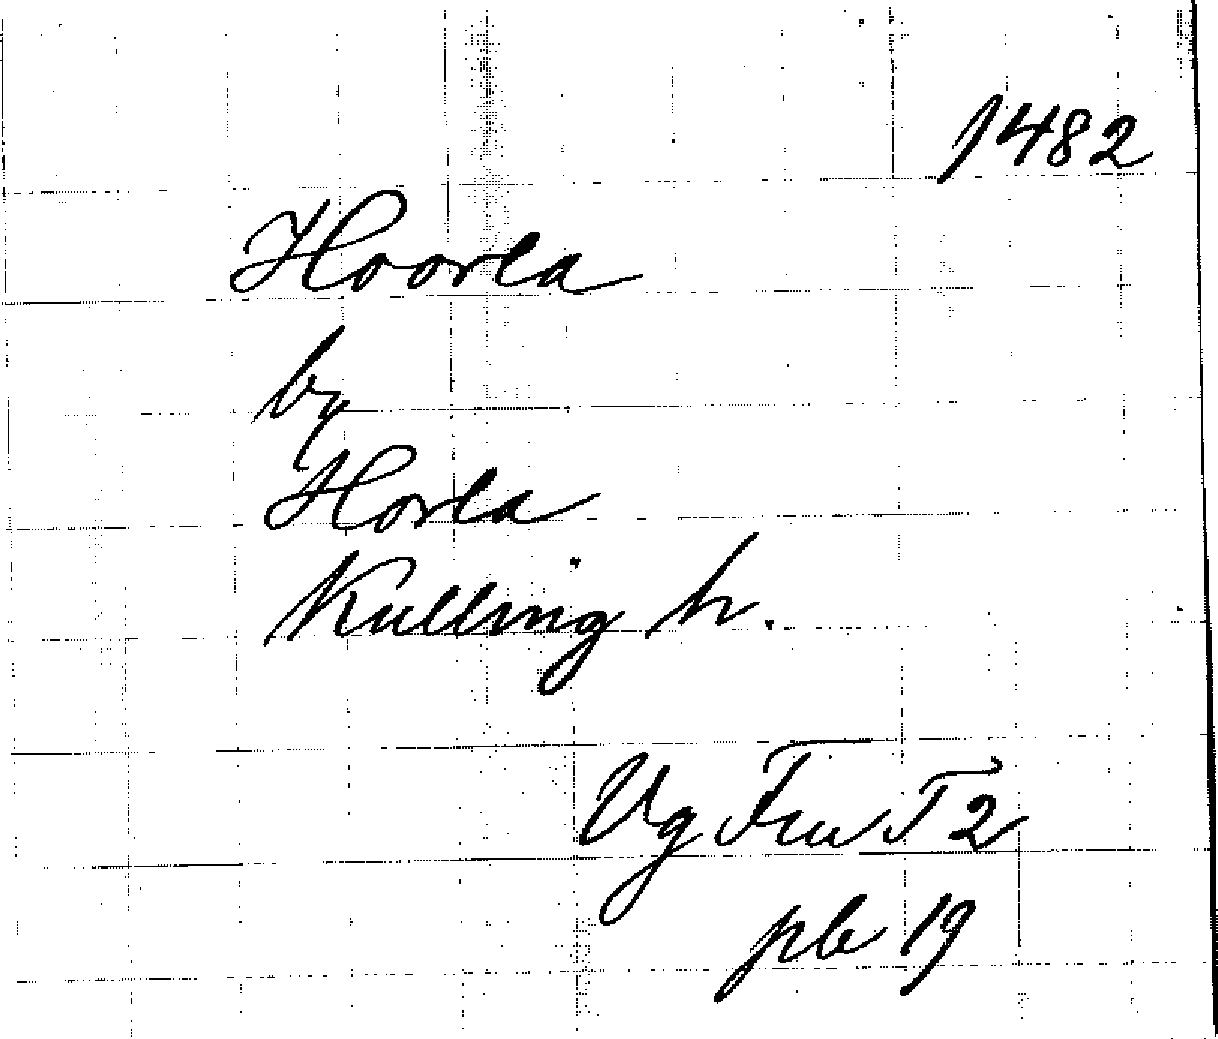 1482
Hoorla
by
Horla
Kulling h.
Vg Fru T 2
pb 19